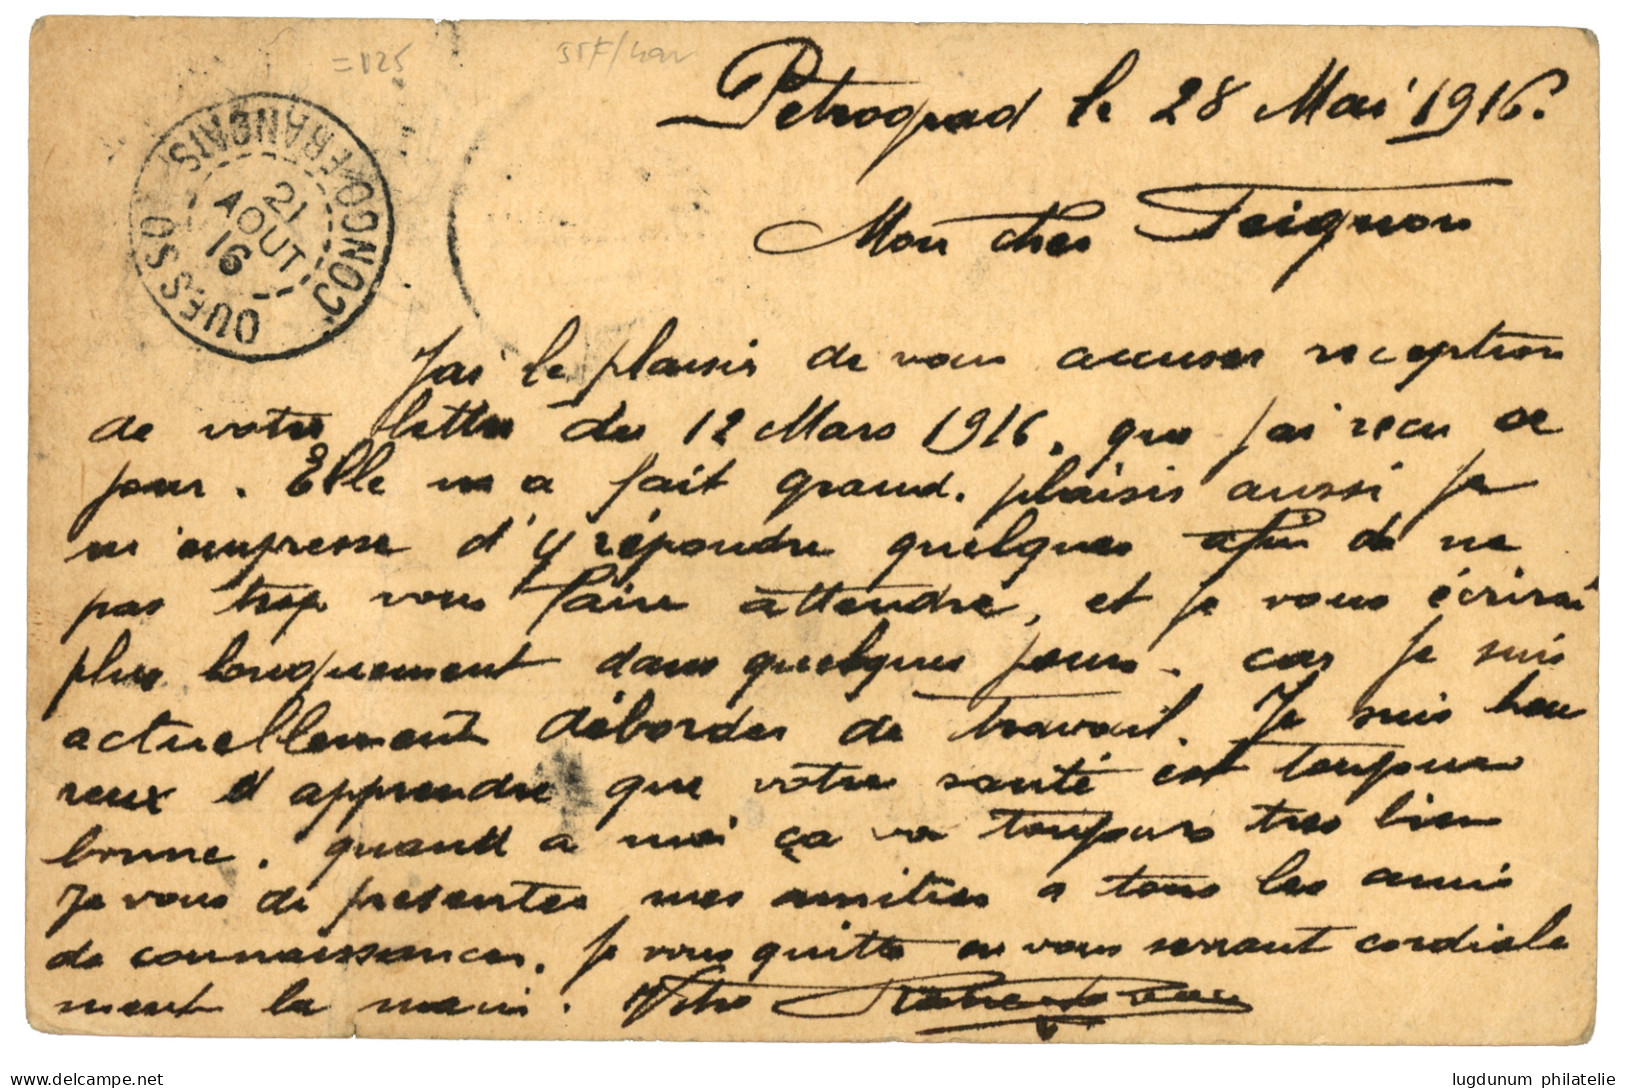 =125
Petrograd le 28 Mai 1916.
CONGO FRANÇAIS
21
AOUT
16
OUESSO
Mon cher Peignon
J'ai le plaisir de vous accuser reception
de votre lettre du 12 Mars 1916, que j'ai recu ce
jour. Elle m a fait grand plaisir aussi je
m'empresse d'y répondre quelques afin de ne
pas trop vous faire attendre, et je vous écrirai
plus longuement dans quelques jours. car je suis
actuellement débordes de travail. Je suis heu
reux d apprendre que votre santé est toujours
bonne. quand a moi ça va toujours tres bien
Je vous di presentes mes amities a tous les amis
de connaissances. Je vous quitte en vous serrant cordiale
ment la main. Votre
lugdunum philatelie